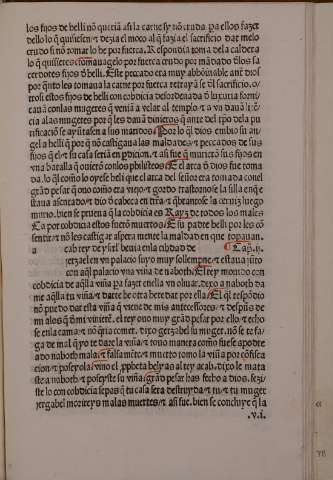 los fijos de helli nō queriā assi la carne sy nō cruda pa ellos fazer
dello lo q̄ quisiesen ⁊ dezia el moço al q̄ fazia el sacrificio dar melo
crudo si nō tomar lo he por fuerça. Respondia toma dela caldera
lo q̄ quisieres tomaua gelo por fuerça crudo por mādado đlos sa
cerdotes fijos đ helli. Este peccado era muy abhominable ant̄ dios
por q̄nto les tomaua la carne por fuerça
otrosi estos fijos de helli con cobdicia desordenada đ luxuria forni
cauā conlas mugeres q̄ veniā a velar al templo ⁊ a
alas mugeres por q̄ les dauā dineros q̄ ante del tp̄o dela pu
rificaciō se ayūtasen a sus maridos Por lo q̄l dios embio su an
gel a helli q̄ por q̄ nō castigaua las maldades ⁊ peccados de sus
fijos q̄ el ⁊ su casa seria en p̄dicion. ⁊ assi fue q̄ murierō sus fijos en
vna batalla q̄ ouierō conlos philisteos El arca đ dios fue toma
da. lo q̄l como lo oyese heli que el arca del señor era tomada con el
grād pesar q̄ ouo como era viejo ⁊ gordo trastornose la silla en q̄
estaua asentado ⁊ dio đ cabeça en tr̄ra ⁊ q̄brantose la ceruiz luego
murio. bien se prueua q̄ la cobdicia es Rayz de todos los males
Ca por cobdicia estos fuerō muertos Et su padre helli por les cō
sentir ⁊ nō les castigar aspera mente la maldad en que topauan.
a cab rey de ysrl̄ biuia enla cibdad de Cap.ii.
jetzael en vn palacio suyo muy sollempne ⁊ estaua jūto
con aq̄l palacio vna viña de naboth El rey mouido con
cobdicia de aq̄lla viña pa fazer enella vn oliuar. dixo a naboth da
me aq̄lla tu viña ⁊ darte he otra heredat por ella El q̄l respōdio
nō puedo dar esta viña q̄ viene de mis antecessores ⁊ despues de
mi alos q̄ đ mi vinierē. el rey ouo muy grād pesar por ello ⁊ echo
se enla cama ⁊ nō q̄ria comer. dixo gezabel su muger. nō se te fa
ga de mal q̄ yo te dare la viña ⁊ touo manera como fuese apedre
ado naboth mala ⁊ falsa mēte ⁊ muerto tomo la viña por cōfisca
cion ⁊ poseyola vino el ꝓpheta helyas al rey acab. dixo le mata
ste a naboth ⁊ poseyste su viña grād pesar has fecho a dios. fezi
ste lo con cobdicia sepas q̄ tu casa sera destruyda ⁊ tu ⁊ tu muger
jezabel morireys malas muertes ⁊ assi fue. bien se concluye q̄ la
.v.i.